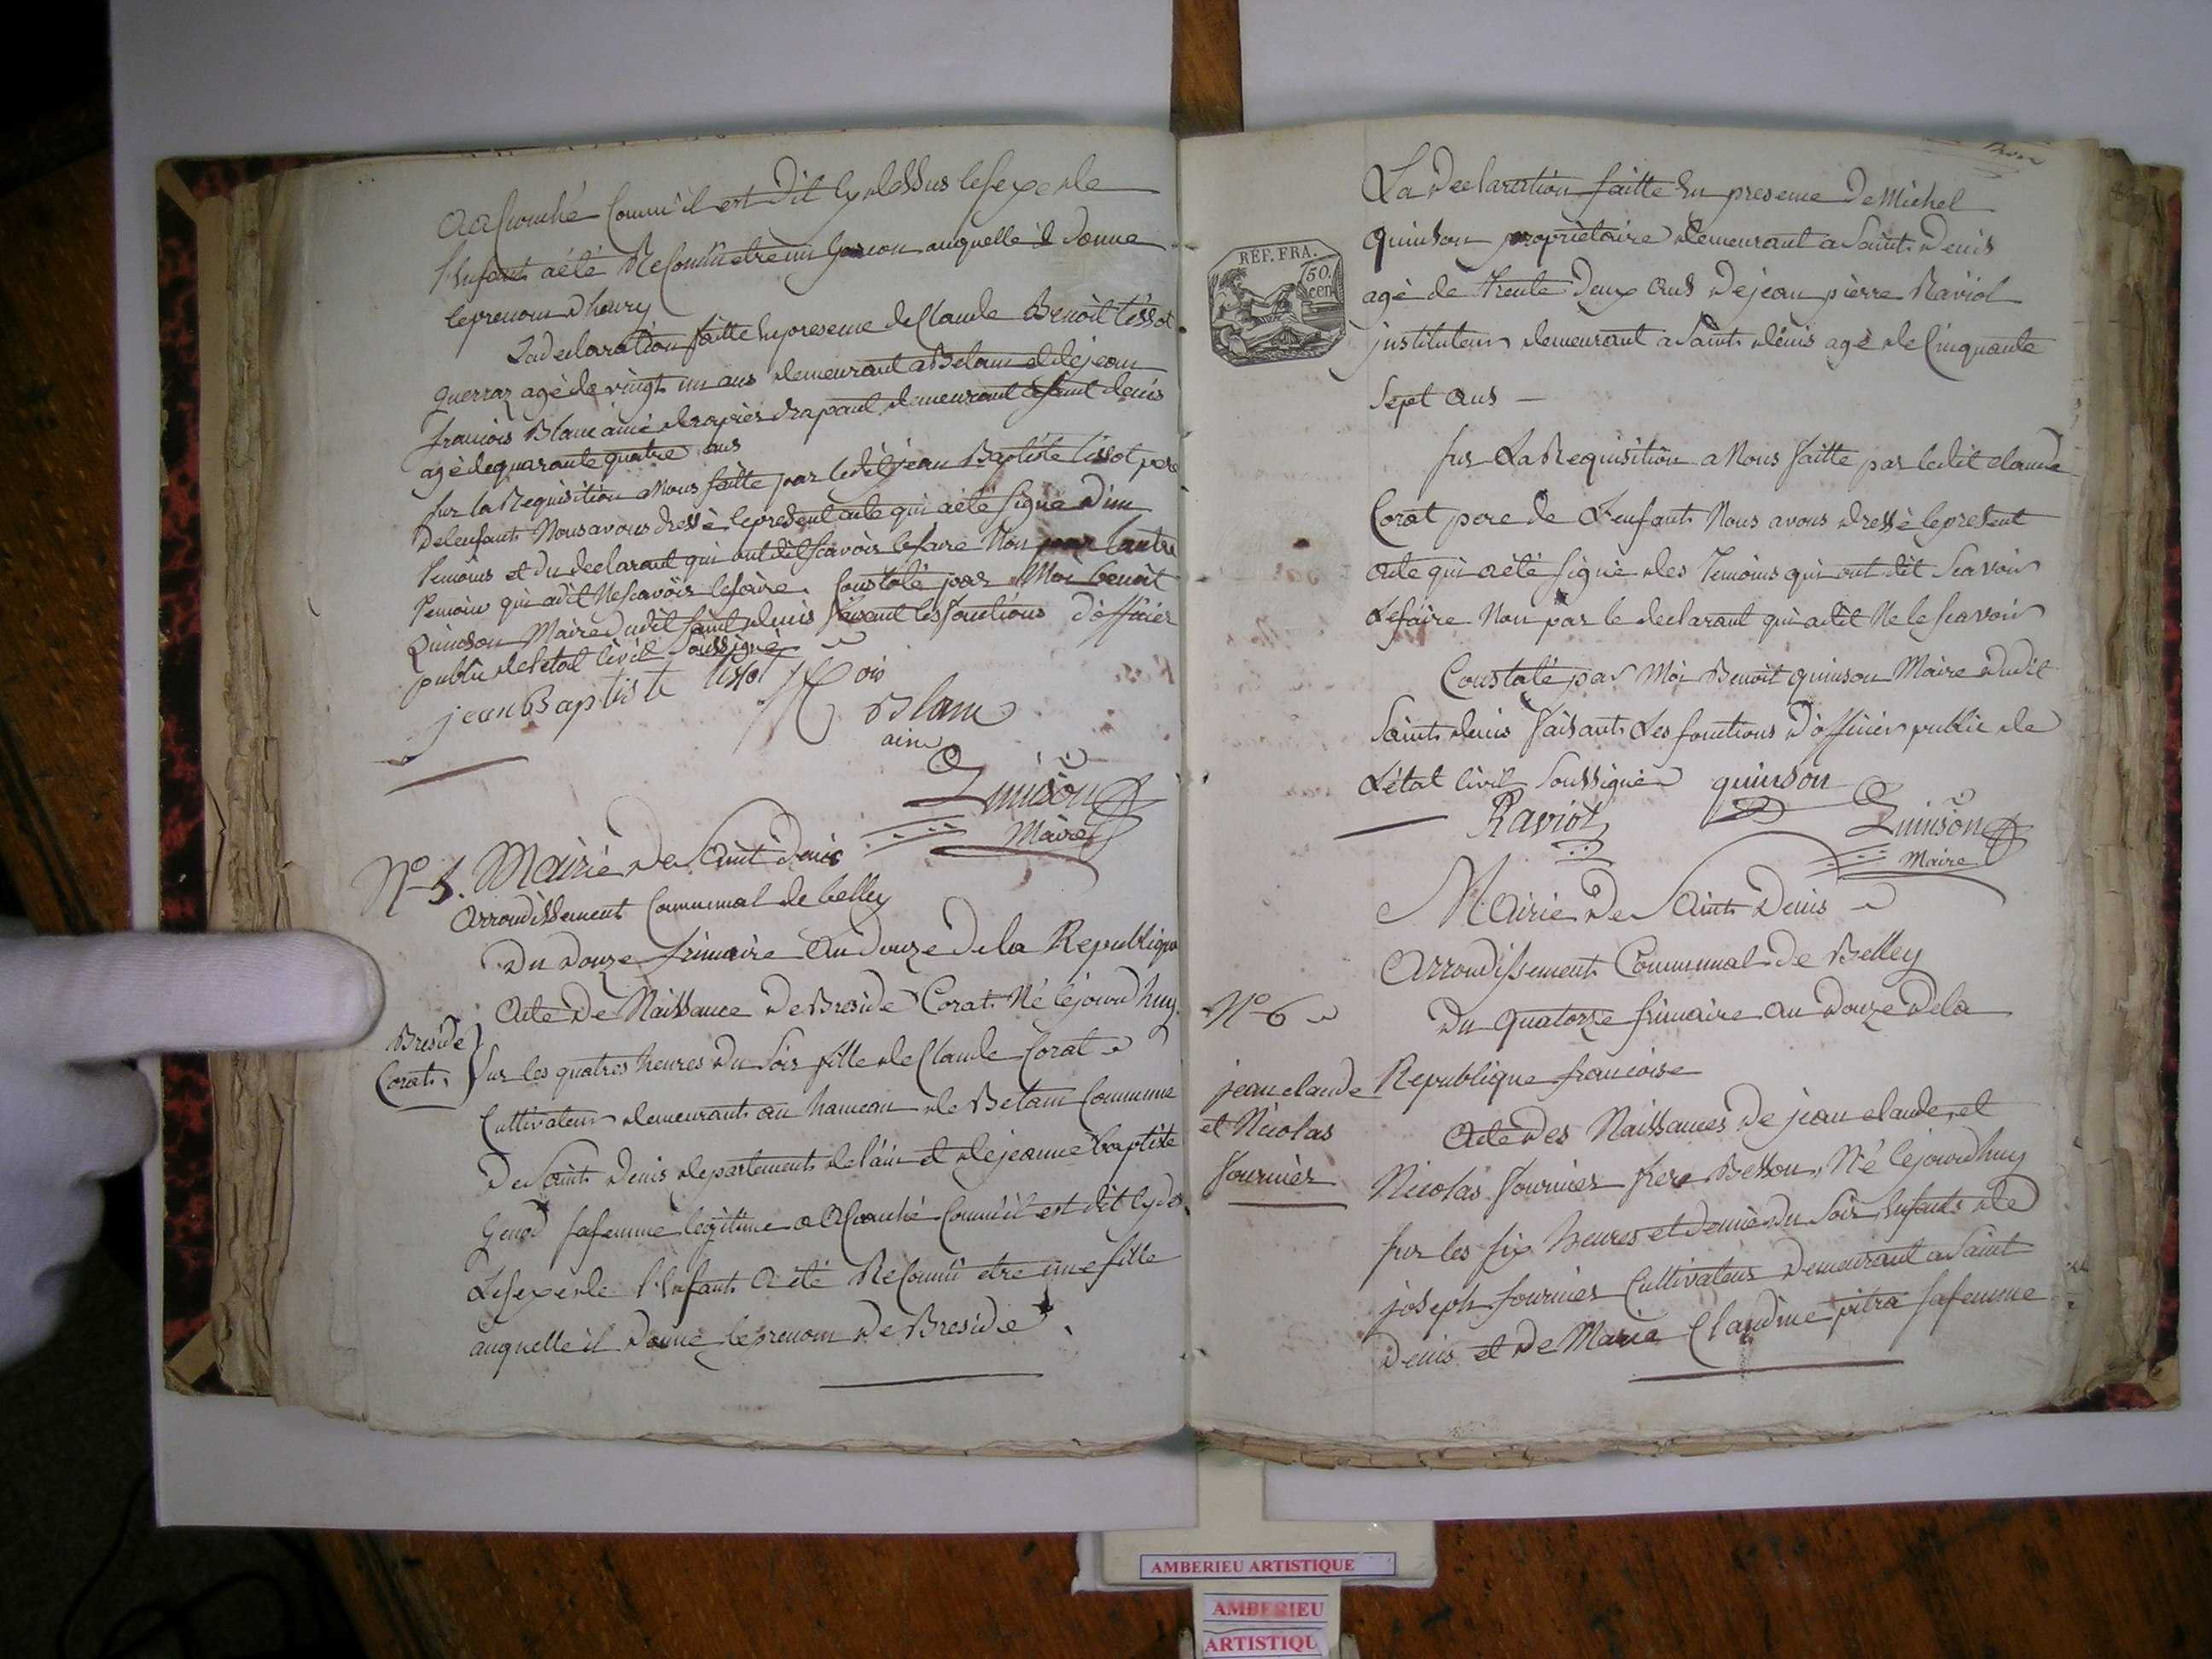 acouché comm'il est dit cy dessus le sexe de
l'enfant a été Reconnu être un Garcon auquelle il donne
le prenom d'henry
La declaration faitte en presence de Claude Benoit tissot
Guerraz agé de vingt un ans demeurant a Betam et de jean
francois Blanc ainé demeurant a saint denis
agé de quarante quatre ans
sur la Requisition a Nous faitte par ledit jean Baptiste tissot pere
de lenfant Nous avons dressé le present acte qui a été signé d'un
Temoins et du declarant qui ont dit scavoir le faire Non par l'autre
Temoins qui a dit Ne scavoir le faire. Constaté par Moi benoit
Quinson Maire dudit saint denis faisant les fonctions d'officier
public de letat civil soussigné
jean Baptiste tissot
ois
Blanc
ainé
Quinson
Maire
N° 5. Mairie de Saint denis
arrondissement Communal de belley
Du Douze frimaire an douze de la Republique
Acte de Naissance de Breside Corat Né cejourd'huy
Breside
Corat.
sur les quatres heures du soir fille de Claude Corat
Cultivateur demeurant au hameau de Betam Commune
De Saint Denis departement de l'ain et de jeanne baptiste
Genod sa femme legitime a acouché comm'il est dit cy des.
Le sexe de l'Enfant a été Reconnu etre une fille
auquelle il donné le prenom de Breside.
REP. FRA.
50.
cen
La declaration faitte En presence de Michel
quinson proprietaire demeurant a Saint Denis
agé de trente Deux ans de jean pierre Raviot
jnstituteur demeurant a Saint denis agé de Cinquante
sept ans —
sur La Requisition a Nous faitte par ledit claude
Corat pere de L'enfant Nous avons dressé le present
acte qui a été signé des Temoins qui ont dit scavoir
Le faire Non par le declarant qui a dit Ne le scavoir
Constaté par Moi Benoit quinson Maire dudit
Saint denis faisant Les fonctions d'officier public de
L'état civil soussigné quinson
Raviot
Quinson
Maire
Mairie de Saint Denis
Arrondissement Communal de Belley
N° 6
Du quatorze frimaire an douze de la
Republique francoise
jean claude
et Nicolas
fournier
Acte des Naissances de jean claude et
Nicolas fournier frere Besson, Né cejourd'huy
sur les six heures et demie du soir, Enfants de
joseph fournier Cultivateur Demeurant a Saint
Denis et de Marie Claudine pitra sa femme
AMBERIEU ARTISTIQUE
AMBERIEU
ARTISTIQU